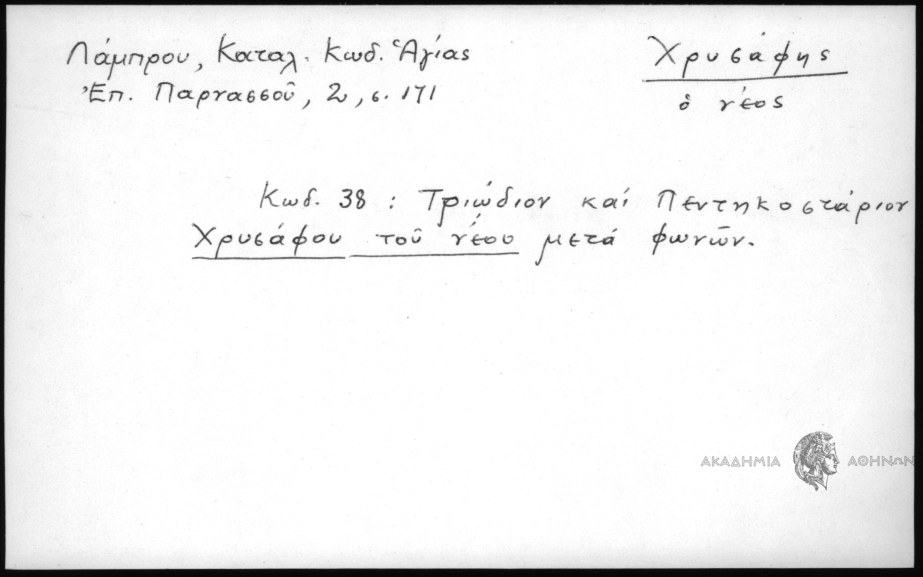 Λάμπρου, Καταλ. Κωδ. Ἁγίας
Ἐπ. Παρνασσοῦ, 2, σ. 171
Χρυσάφης
ὁ νέος
Κωδ. 38 : Τριώδιον καί Πεντηκοστάριον
Χρυσάφου τοῦ νέου μετά φωνῶν.
ΑΚΑΔΗΜΙΑ ΑΘΗΝΩΝ